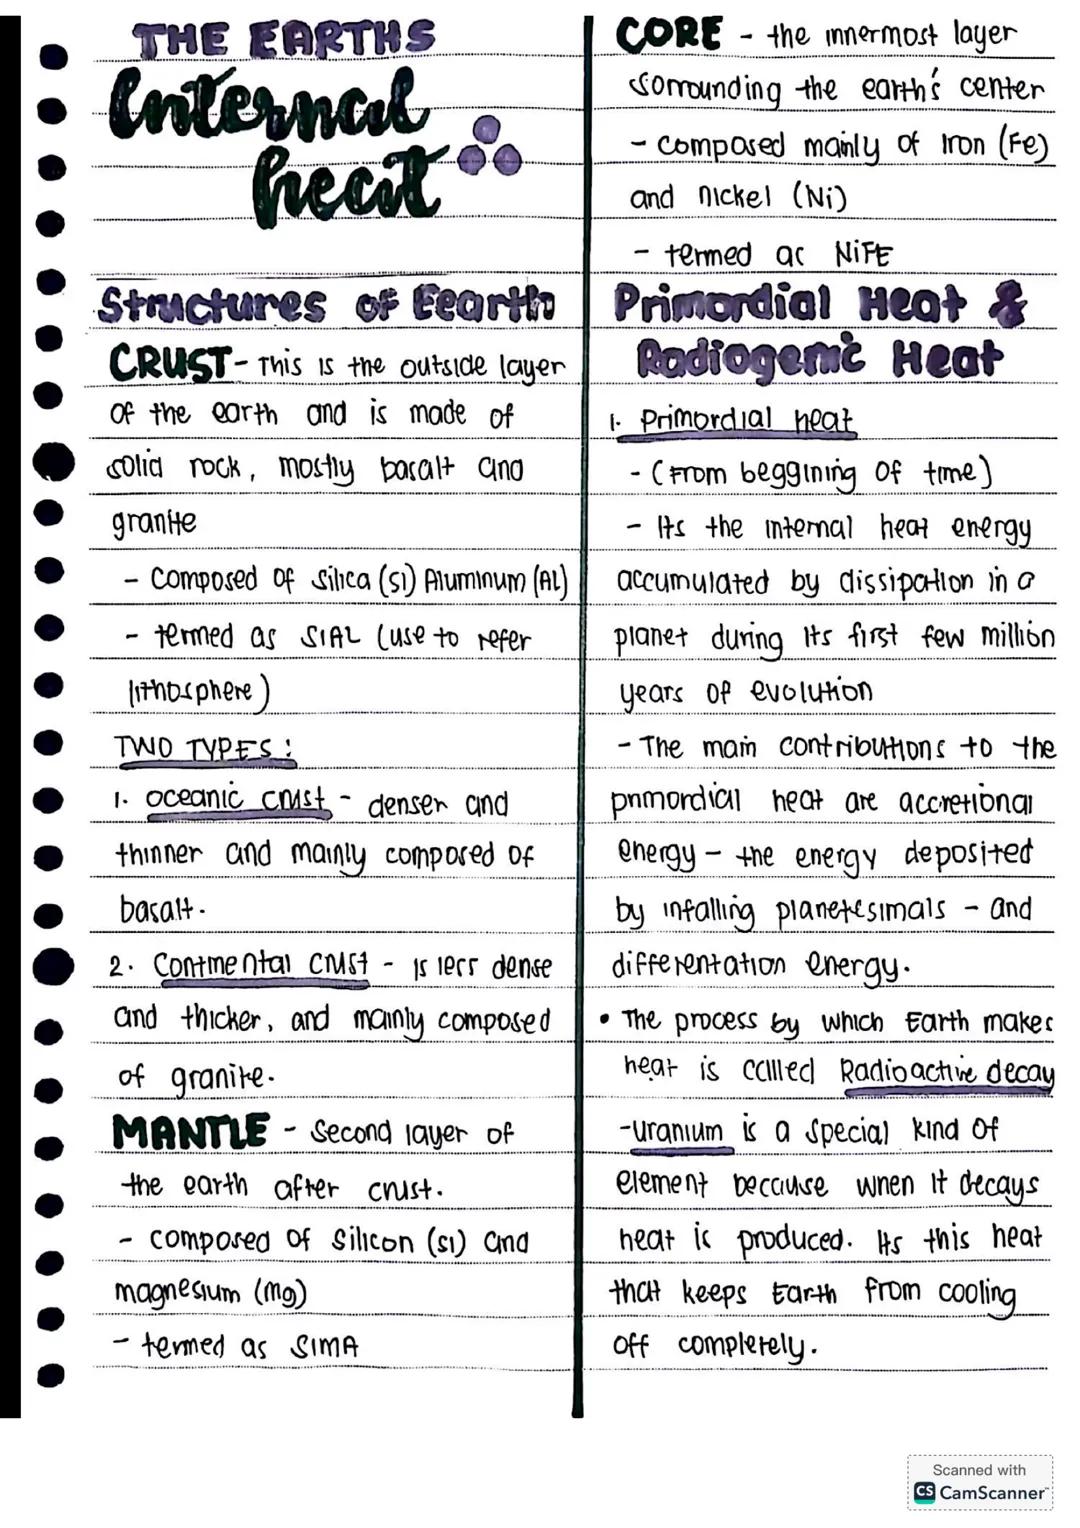 THE EARTHS
Internal
heat
Structures of Eearth
CRUST - This is the outside layer
of the earth and is made of
solid rock, mostly basalt and
granite
- Composed of Silica (Si) Aluminum (AL)
- termed as SIAL (use to refer
lithosphere)
TWO TYPES:
1. oceanic crust - denser and
thinner and mainly composed of
basalt.
2. Continental crust - is less dense
and thicker, and mainly composed
of granite.
MANTLE - Second layer of
the earth after crust.
- composed of Silicon (si) and
magnesium (Mg)
- termed as SIMA
CORE - the innermost layer
sorrounding the earth's center
- composed mainly of Iron (Fe)
and nickel (Ni)
- termed as NiFE
Primordial Heat &
Radiogenic Heat
1. Primordial heat
- (From beggining of time)
- Its the internal heat energy
accumulated by dissipation in a
planet during its first few million
years of evolution
- The main contributions to the
primordial heat are accretional
energy - the energy deposited
by infalling planetesimals - and
differentation energy.
• The process by which Earth makes
heat is called Radioactive decay
- Uranium is a special kind of
element because when it decays
heat is produced. Its this heat
that keeps Earth from cooling
off completely.
Scanned with
CS CamScanner